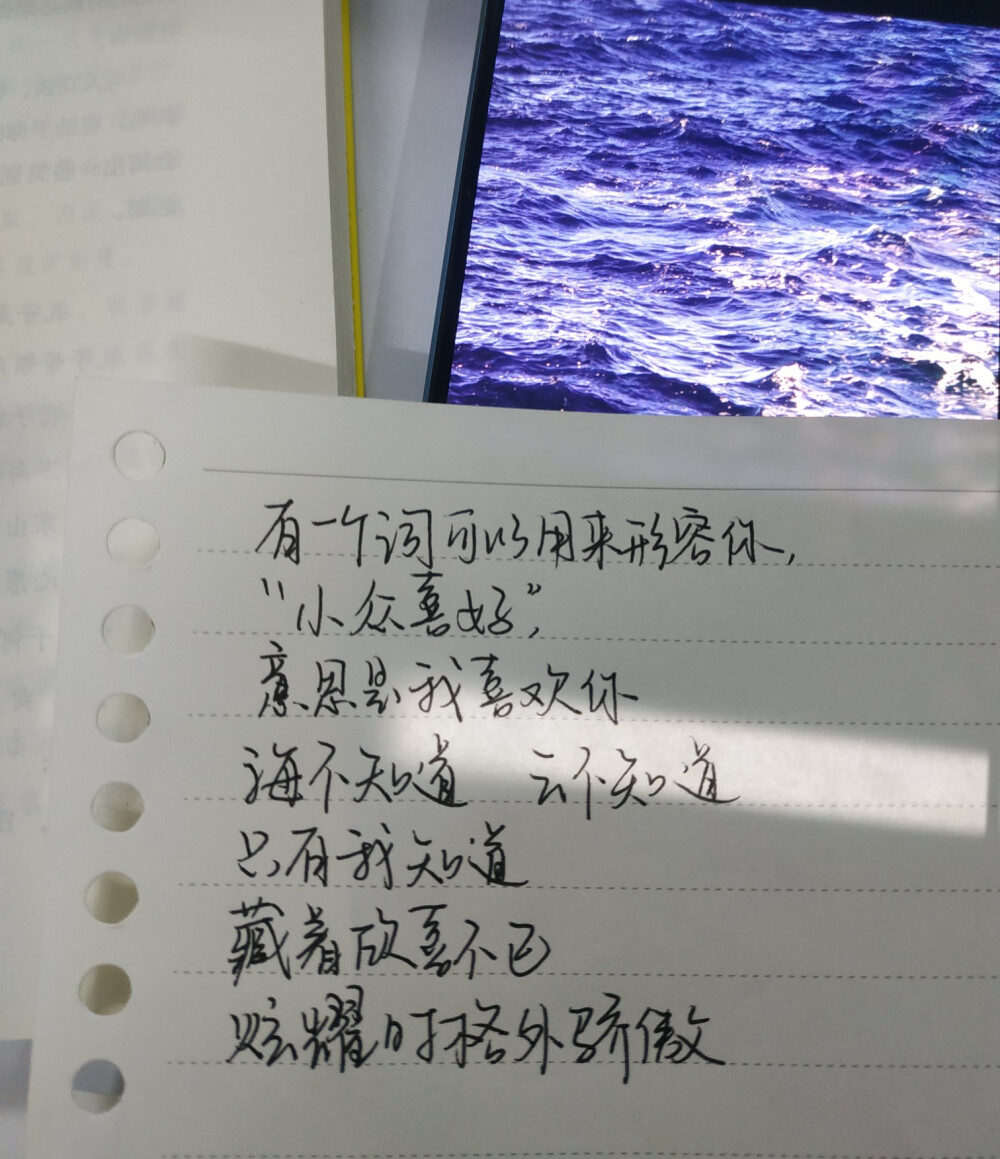 有一个词可以用来形容你,
“小众喜好”,
意思是我喜欢你
海不知道 云不知道
只有我知道
藏着欣喜不已
炫耀时格外骄傲